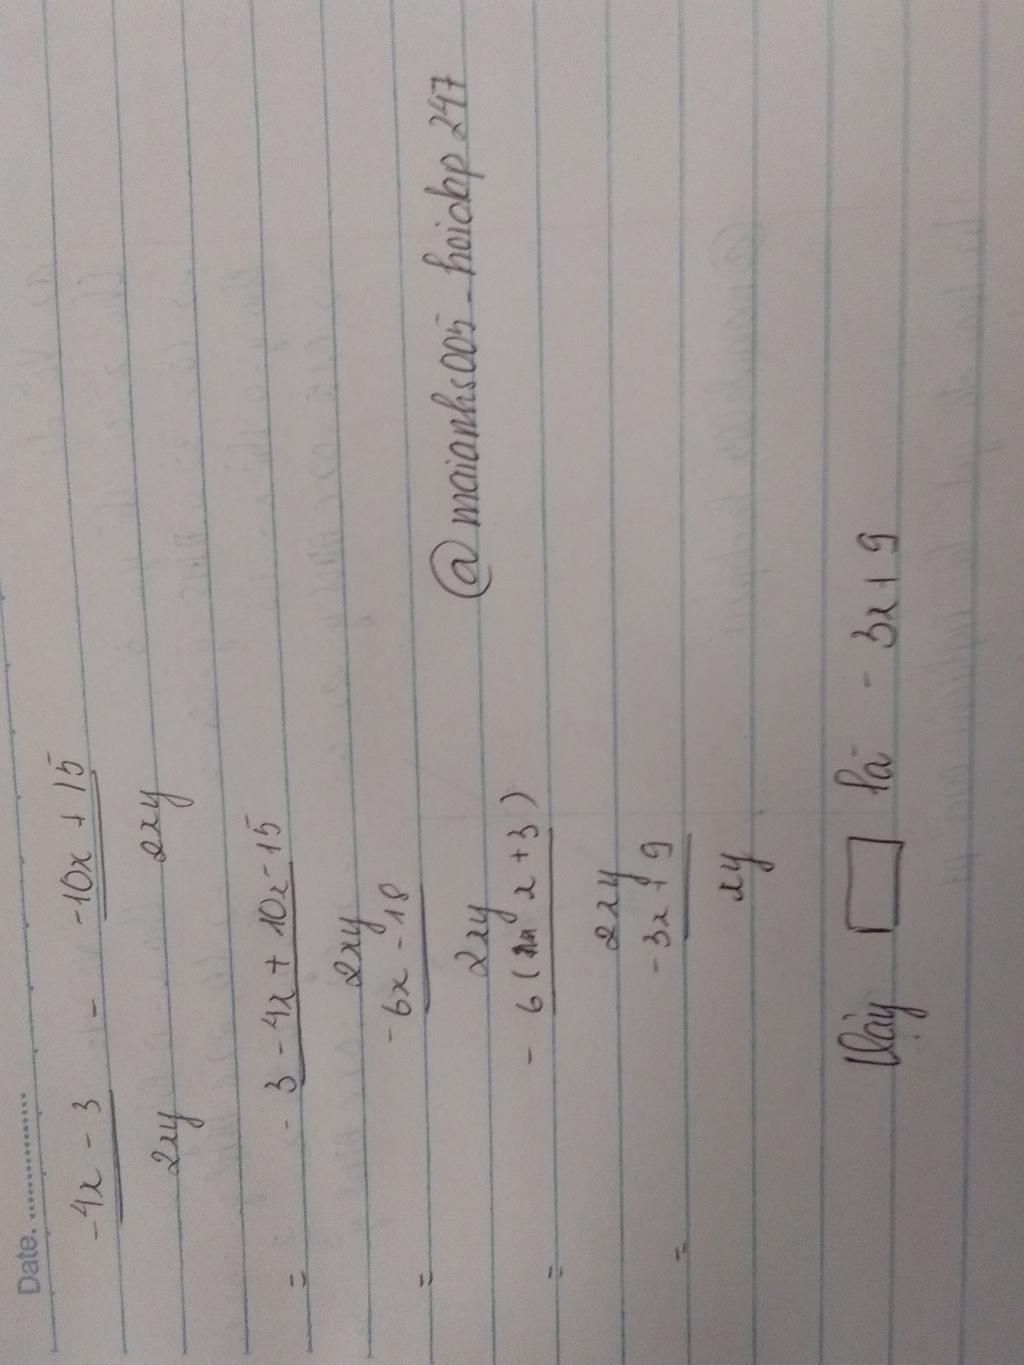 Date.
-4x - 3 - -10x + 15
2xy 2xy
= -3 - 4x + 10x - 15
2xy
= -6x - 18
2xy
= - 6 ( x + 3 )
2xy
= -3x + 9
xy
Vậy □ là - 3x + 9
@maianhs005 - hoidap 247